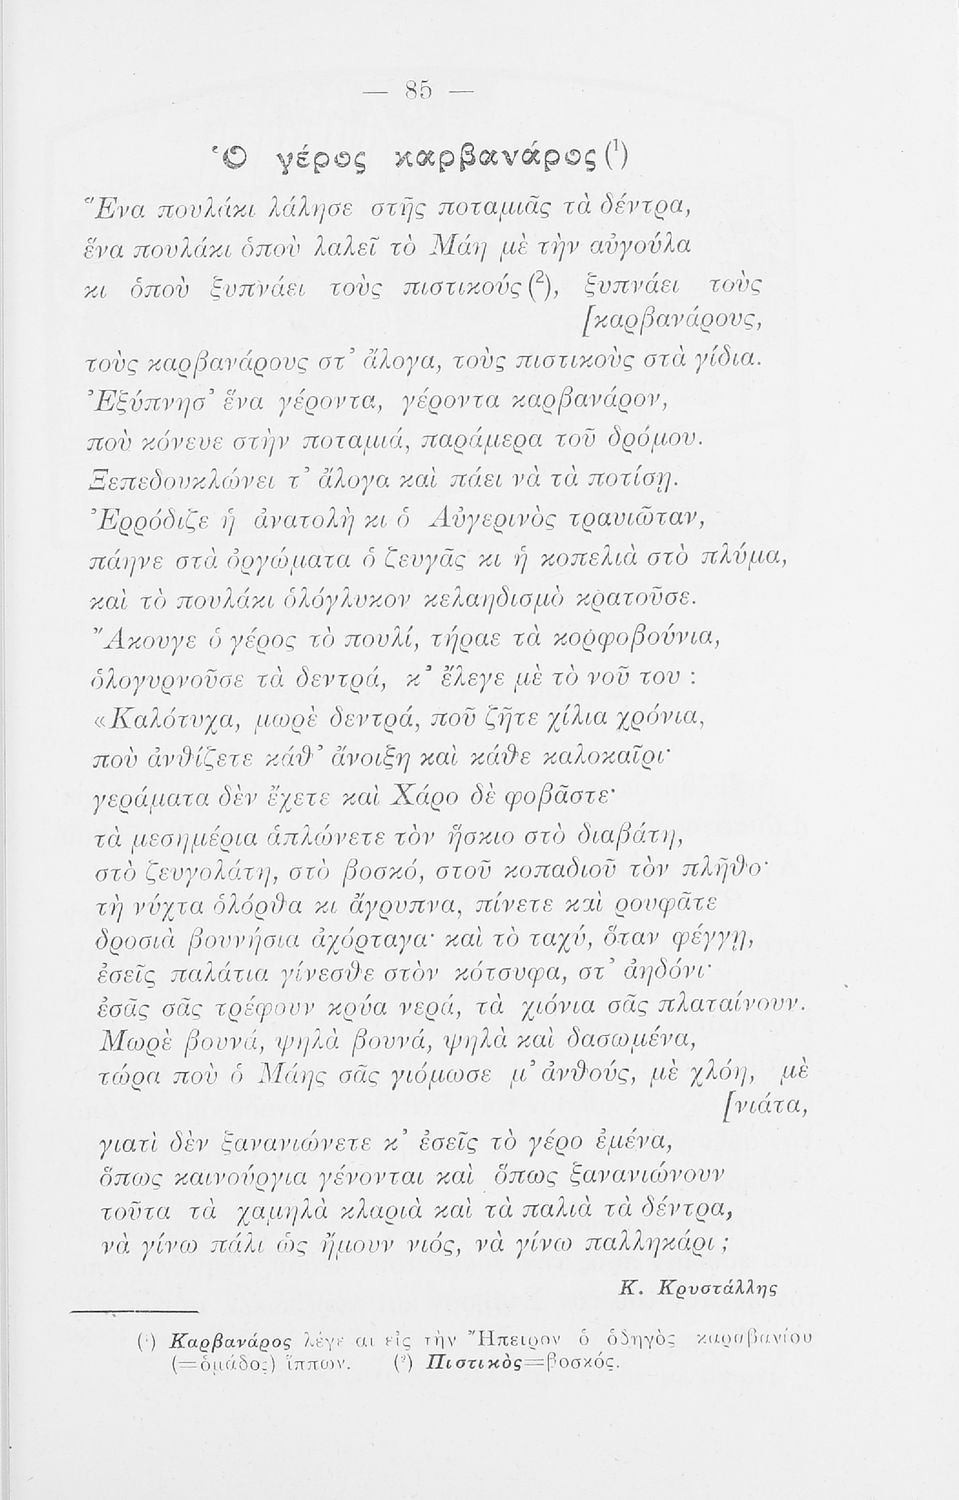 — 85 —
Ὁ γέρος καρβανάρος (¹)
Ἕνα πουλάκι λάλησε στῆς ποταμιᾶς τὰ δέντρα,
ἕνα πουλάκι ὁποὺ λαλεῖ τὸ Μάη μὲ τὴν αὐγούλα
κι ὁποὺ ξυπνάει τοὺς πιστικούς (²), ξυπνάει τοὺς
[καρβανάρους,
τοὺς καρβανάρους στ’ ἄλογα, τοὺς πιστικοὺς στὰ γίδια.
Ἐξύπνησ’ ἕνα γέροντα, γέροντα καρβανάρον,
ποὺ κόνευε στὴν ποταμιά, παράμερα τοῦ δρόμου.
Ξεπεδουκλώνει τ’ ἄλογα καὶ πάει νὰ τὰ ποτίσῃ.
Ἐρρόδιζε ἡ ἀνατολὴ κι ὁ Αὐγερινὸς τραυιῶταν,
πάηνε στὰ ὀργώματα ὁ ζευγᾶς κι ἡ κοπελιὰ στὸ πλύμα,
καὶ τὸ πουλάκι ὁλόγλυκον κελαηδισμὸ κρατοῦσε.
Ἄκουγε ὁ γέρος τὸ πουλί, τήραε τὰ κορφοβούνια,
ὁλογυρνοῦσε τὰ δεντρά, κ’ ἔλεγε μὲ τὸ νοῦ του :
«Καλότυχα, μωρὲ δεντρά, ποῦ ζῆτε χίλια χρόνια,
ποὺ ἀνθίζετε κάθ’ ἄνοιξη καὶ κάθε καλοκαῖρι·
γεράματα δὲν ἔχετε καὶ Χάρο δὲ φοβᾶστε·
τὰ μεσημέρια ἁπλώνετε τὸν ἥσκιο στὸ διαβάτη,
στὸ ζευγολάτη, στὸ βοσκό, στοῦ κοπαδιοῦ τὸν πλῆθο·
τὴ νύχτα ὁλόρθα κι ἄγρυπνα, πίνετε καὶ ρουφᾶτε
δροσιὰ βουνήσια ἀχόρταγα· καὶ τὸ ταχύ, ὅταν φέγγῃ,
ἐσεῖς παλάτια γίνεσθε στὸν κότσυφα, στ’ ἀηδόνι·
ἐσᾶς σᾶς τρέφουν κρύα νερά, τὰ χιόνια σᾶς πλαταίνουν.
Μωρὲ βουνά, ψηλὰ βουνά, ψηλὰ καὶ δασωμένα,
τώρα ποὺ ὁ Μάης σᾶς γιόμωσε μ’ ἀνθούς, μὲ χλόη, μὲ
[νιάτα,
γιατὶ δὲν ξανανιώνετε κ’ ἐσεῖς τὸ γέρο ἐμένα,
ὅπως καινούργια γένονται καὶ ὅπως ξανανιώνουν
τοῦτα τὰ χαμηλὰ κλαριὰ καὶ τὰ παλιὰ τὰ δέντρα,
νὰ γίνω πάλι ὡς ἤμουν νιός, νὰ γίνω παλληκάρι ;
Κ. Κρυστάλλης
(¹) Καρβανάρος λέγεται εἰς τὴν Ἤπειρον ὁ ὁδηγὸς καραβανίου
(=ὁμάδος) ἵππων. (²) Πιστικὸς=βοσκός.